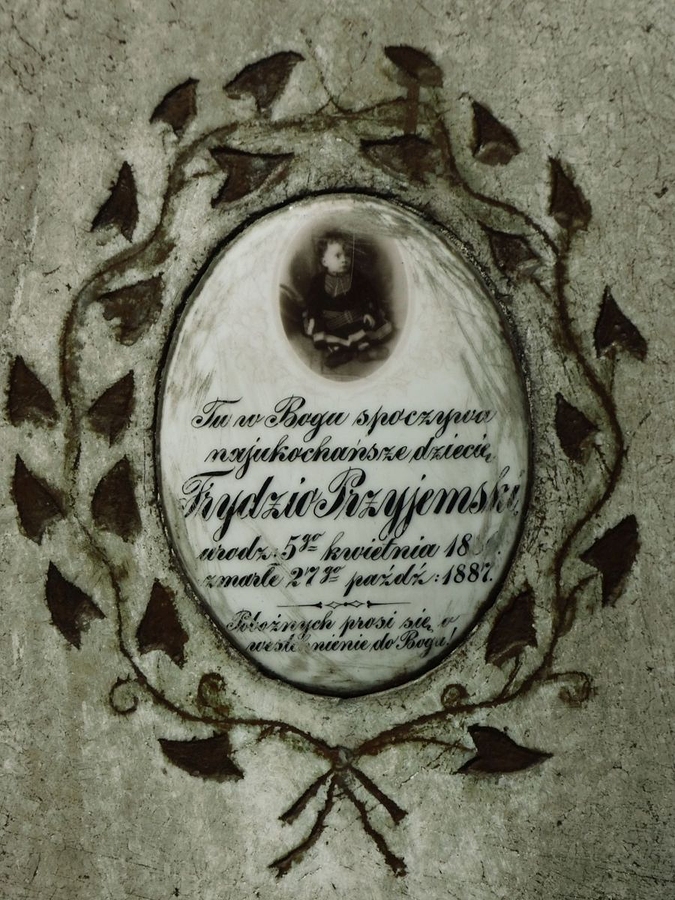 Tu w Bogu spoczywa
najukochańsze dziecię
Frydzio Przyjemski,
urodz: 5go kwietnia 18
zmarłe 27go paźdź: 1887.
Pobożnych prosi się o
westchnienie do Boga!